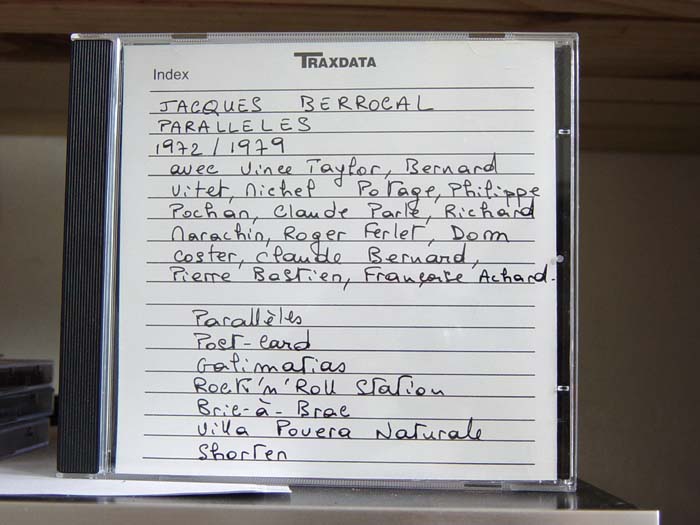 TRAXDATA
Index
JACQUES BERROCAL
PARALLELES
1972/1979
avec Vince Taylor, Bernard
Vitet, Michel Potage, Philippe
Pochan, Claude Parle, Richard
Marachin, Roger Ferlet, Dom
Coster, Claude Bernard,
Pierre Bastien, Françoise Achard.
Parallèles
Post-card
Galimatias
Rock'n'Roll Station
Bric-à-Brac
Villa Povera Naturale
Shorten